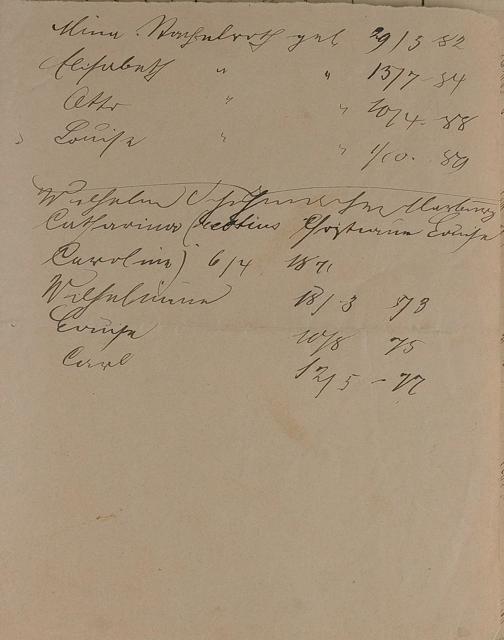 Mina Nachelroth geb 29/3 82
Elisabeth " " 15/7 - 84
Otto " " 10/4 - 88
Louise " " 1/10. 89
Wilhelm Marburg
Catharina ( Christiane Louise
Caroline) 6/4 1871
Wilhelmine 18/3 73
Louise 10/8 75
Carl 12/5 - 77